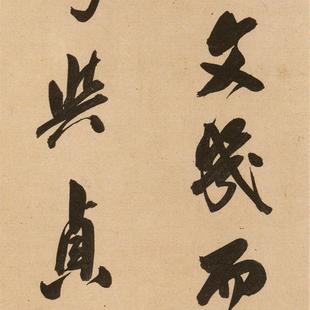 文幾而
與貞